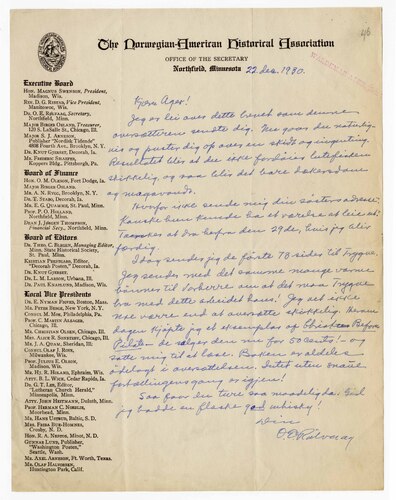 46
The Norwegian-American Historical Association
OFFICE OF THE SECRETARY
Northfield, Minnesota
22 des. 1930.
Executive Board
HON. MAGNUS SWENSON, President,
Madison, Wis.
REV. D. G. RISTAD, Vice President,
Manitowoc, Wis.
DR. O. E. RØLVAAG, Secretary,
Northfield, Minn.
MAJOR BIRGER OSLAND, Treasurer,
120 S. LaSalle St., Chicago, Ill.
MAJOR S. J. ARNESEN,
Publisher "Nordisk Tidende"
4808 Fourth Ave., Brooklyn, N. Y.
DR. KNUT GJERSET, Decorah, Ia.
MR. FREDRIK SCHEFER,
Koppers Bldg., Pittsburgh, Pa.
Board of Finance
HON. O. M. OLESON, Fort Dodge, Ia.
MAJOR BIRGER OSLAND.
MR. A. N. RYGG, Brooklyn, N. Y.
DR. T. STABO, Decorah, Ia.
MR. E. G. QUAMME, St. Paul, Minn.
PROF. P. O. HOLLAND,
Northfield, Minn.
DEAN J. JØRGEN THOMPSON,
Financial Secy., Northfield, Minn.
Board of Editors
DR. THEO. C. BLEGEN, Managing Editor,
Minn. State Historical Society,
St. Paul, Minn.
KRISTIAN PRESTGARD, Editor,
"Decorah Posten", Decorah, Ia.
DR. KNUT GJERSET.
DR. L. M. LARSON, Urbana, Ill.
DR. PAUL KNAPLUND, Madison, Wis.
Local Vice Presidents
DR. E. NYMAN FIGVED, Boston, Mass.
MR. PETER BERGE, New York, N. Y.
CONSUL M. MOE, Philadelphia, Pa.
PROF. C. MARIUS ALSAGER,
Chicago, Ill.
MR. CHRISTIAN OLSEN, Chicago, Ill.
MRS. ALICE R. SORENSEN, Chicago, Ill.
MR. J. A. QUAM, Sheridan, Ill.
CONSUL OLAF I. ROVE,
Milwaukee, Wis.
PROF. JULIUS E. OLSON,
Madison, Wis.
MR. HJ. R. HOLAND, Ephraim, Wis.
ATTY. B. L. WICK, Cedar Rapids, Ia.
DR. G. T. LEE, Editor,
"Lutheran Church Herald",
Minneapolis, Minn.
ATTY. JOHN HEITMANN, Duluth, Minn.
PROF. HERMAN C. NORDLIE,
Moorhead, Minn.
MR. HANS USTRUD, Baltic, S. D.
MRS. FEBRA BUE-HOMNES,
Crosby, N. D.
HON. R. A. NESTOS, Minot, N. D.
GUNNAR LUND, Publisher,
"Washington Posten",
Seattle, Wash.
MR. AXEL ARNESON, Ft. Worth, Texas.
MR. OLAF HALVORSEN,
Huntington Park, Calif.
Kjære Ager!
Jeg er lei over dette brevet som denne
oversætteren sendte dig. Nu gøves du naturlig-
vis og puster dig op over en skidt og ingenting.
Resultatet blir at du ikke fordøier lutefisken
skikkelig og saa blir det bare hokersdom
og magavondt.
Hvorfor ikke sende mig din søsters adresse?
Kanske hun kunde ha et værelse at leie ut?
Tænker at dra herfra den 29de, hvis jeg blir
færdig.
I dag sender jeg de første 78 sider til Trygve.
Jeg sender med det samme mange varme
bønner til Vorherre om at det maa Trygve
bra med dette arbeidet hans! Jeg vet ikke
noe værre end at oversætte skikkelig. Herom
dagen kjøpte jeg et eksemplar af Christ Before
Pilate - de sælger den nu for 50 cents! - og
satte mig til at læse. Boken er aldeles
ødelagt i oversættelsen. Intet uten snaue
fortællingens gang er igjen!
Saa faar du ture saa moderlig. Gud
jeg hadde en flaske god whisky!
Din
O E Rølvaag